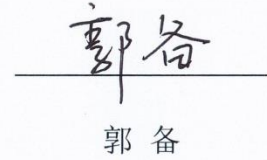 郭备
郭 备